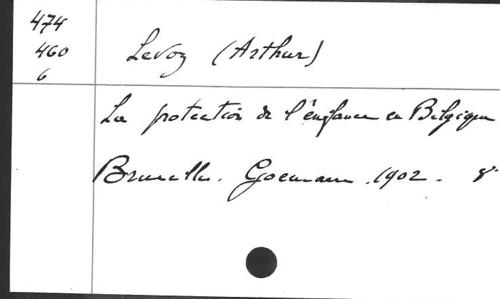 474
460
6
Levoz (Arthur)
La protection de l'enfance en Belgique
Bruxelles. Goemaere. 1902. 8°